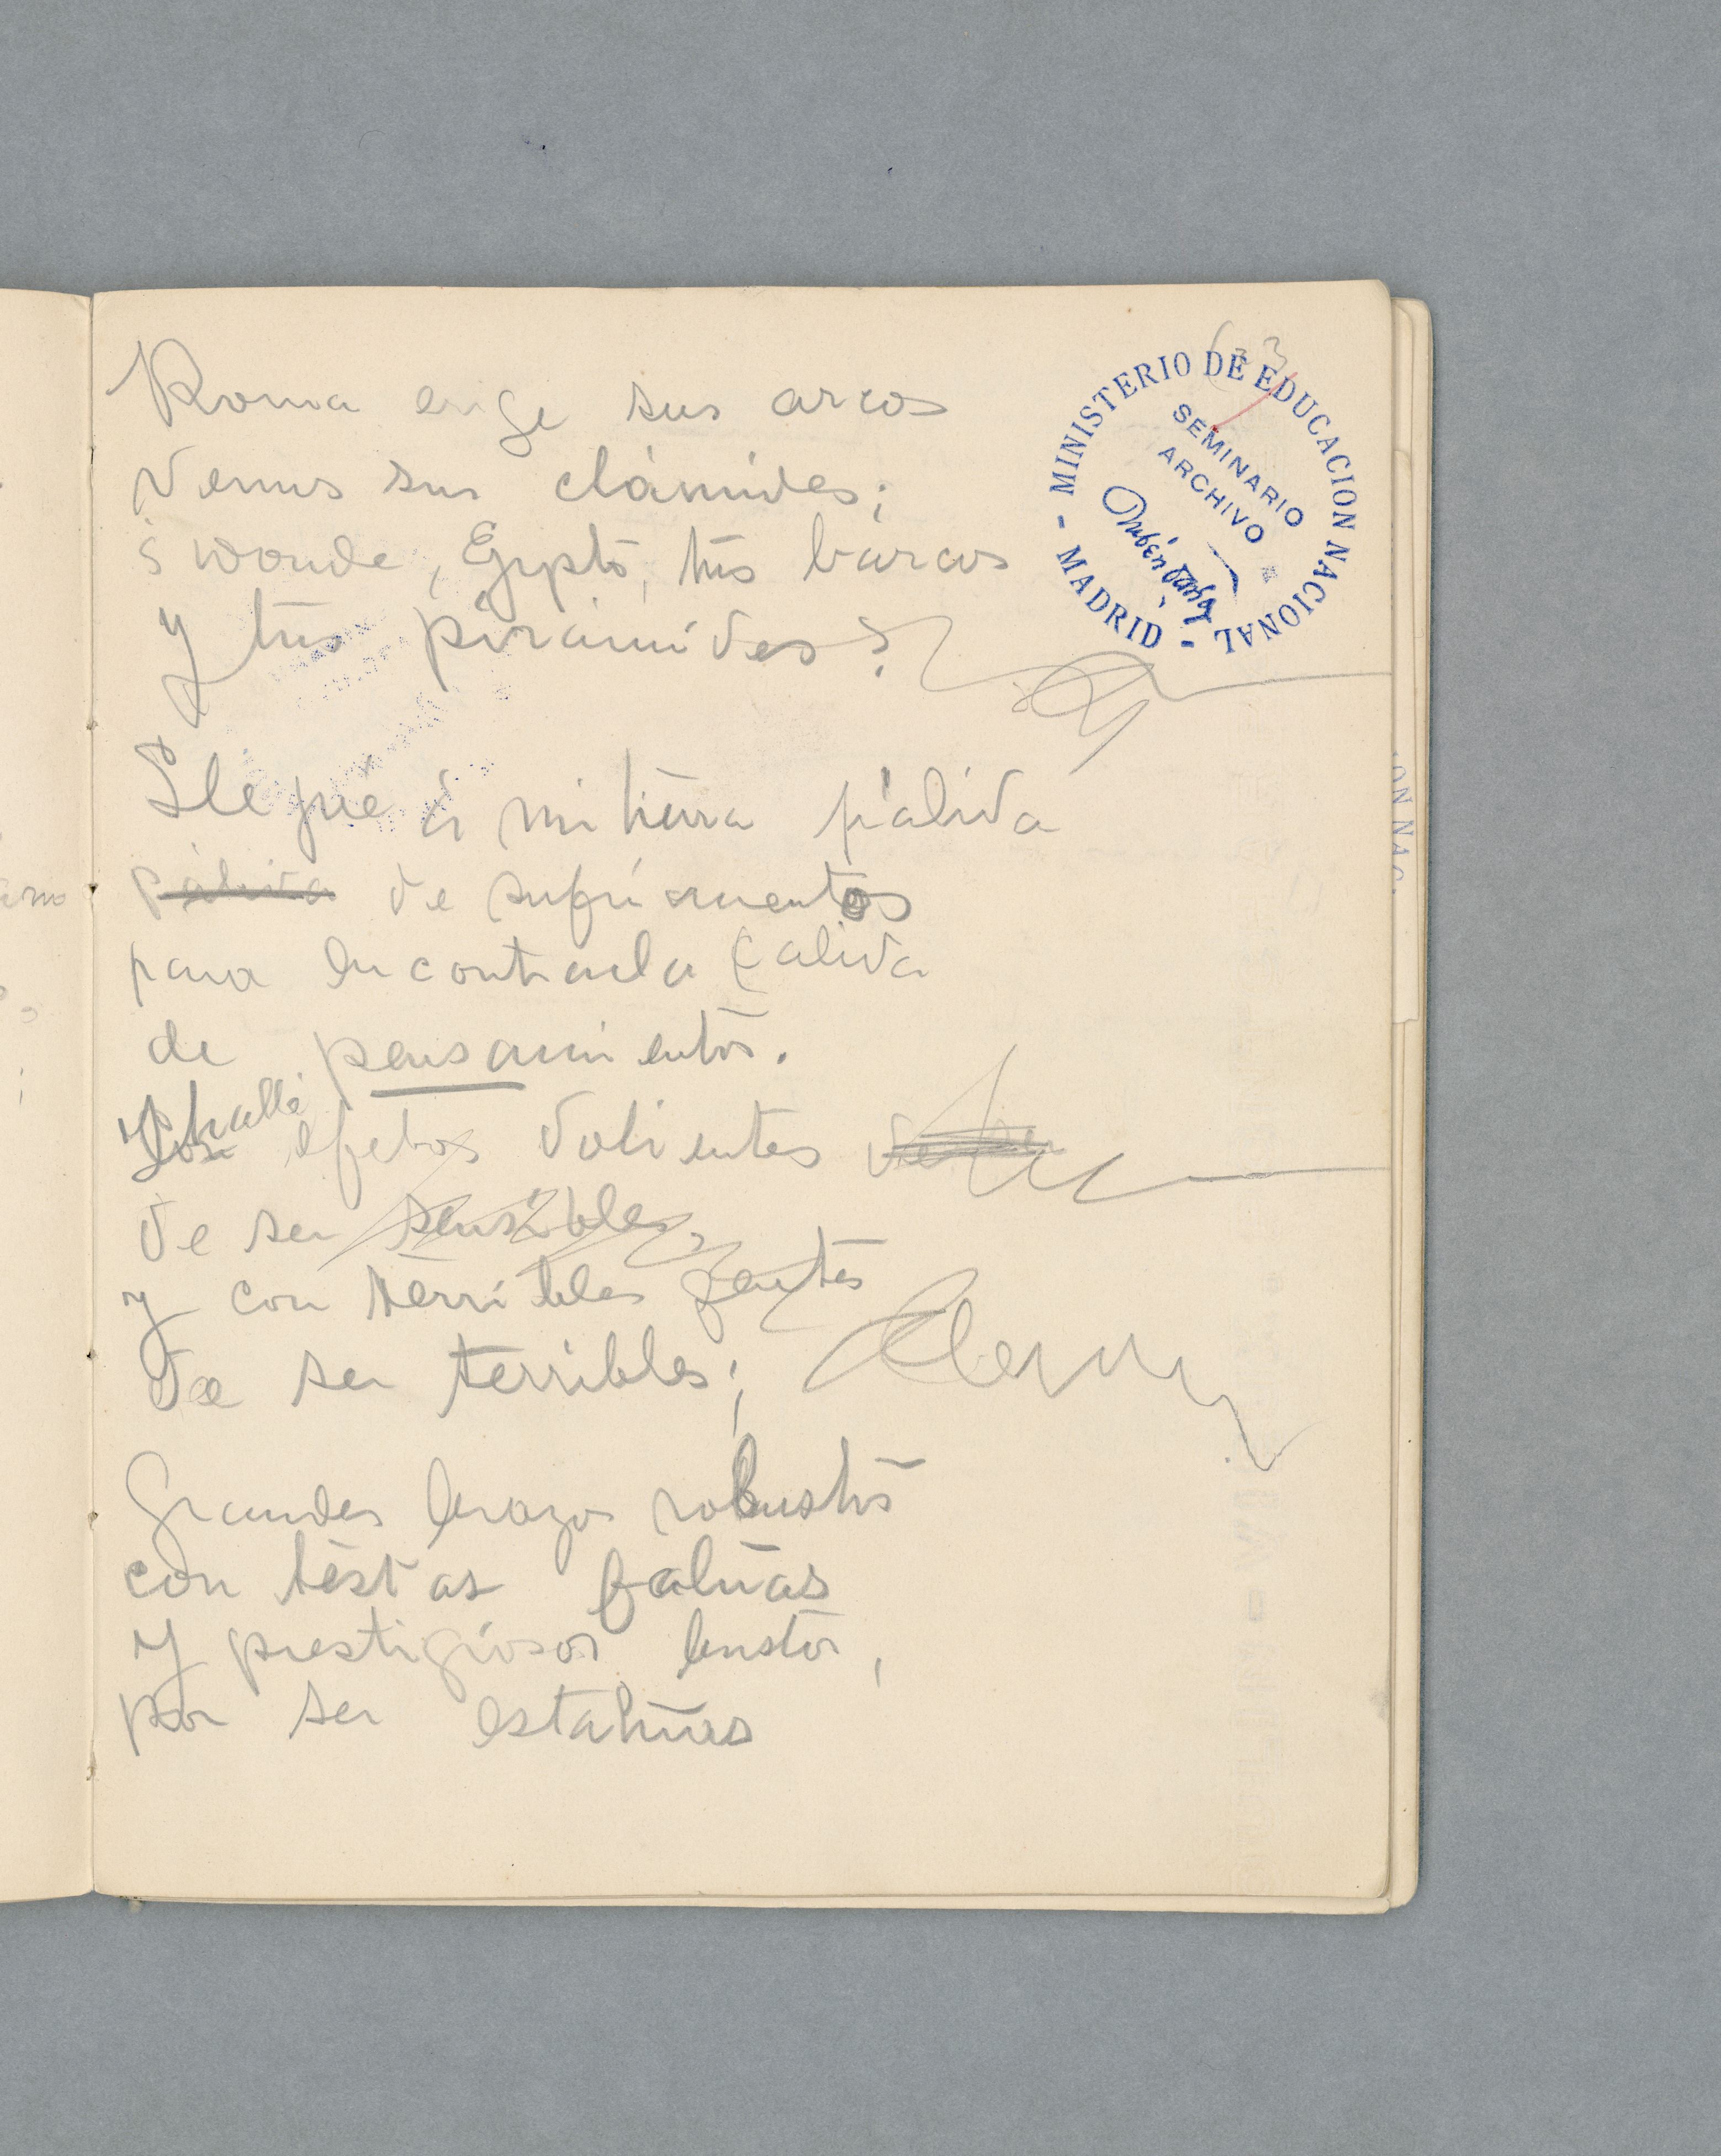 63
MINISTERIO DE EDUCACION NACIONAL - MADRID -
SEMINARIO
ARCHIVO
Rubén Darío
Roma erige sus arcos
Venus sus clámides;
¿Y donde, Egypto, tus barcos
y tus pirámides?
Llegué á mi tierra pálida
pálida de sufrimientos
para encontrarla cálida
de pensamientos.
Y hallé
Los efebos dolientes de ser
de ser sensibles,
y con terribles gentes
de ser terribles;
Grandes brazos robustos
con testas fatuas
y prestigiosos bustos,
por ser estatuas
ION NAC.